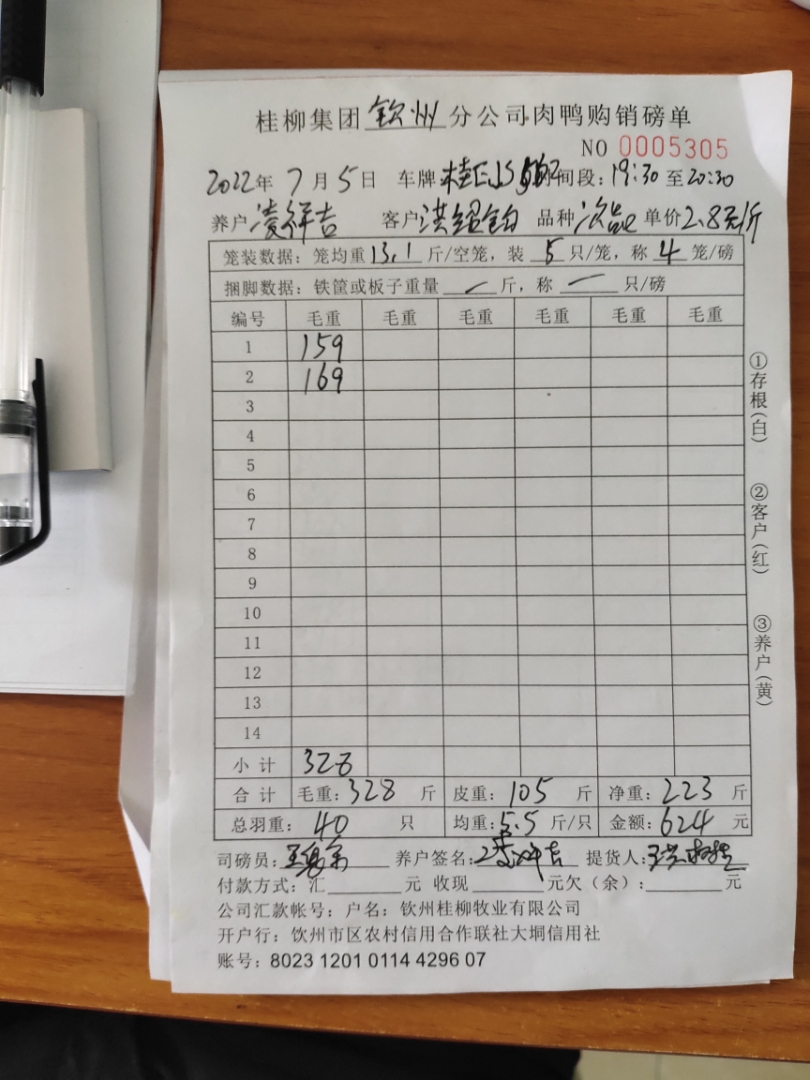 桂柳集团 钦州 分公司肉鸭购销磅单
NO 0005305
2022年 7月 5日 车牌 时间段：19:30 至 20:30
养户 凌祥吉 客户 洪 品种 单价 2.8元/斤
笼装数据：笼均重 13.1 斤/空笼，装 5 只/笼，称 4 笼/磅
捆脚数据：铁筐或板子重量 一 斤，称 一 只/磅
编号 毛重 毛重 毛重 毛重 毛重 毛重
1 159
2 169
3
4
5
6
7
8
9
10
11
12
13
14
小计 328
合计 毛重：328 斤 皮重：105 斤 净重：223 斤
总羽重：40 只 均重：5.5 斤/只 金额：624 元
司磅员： 养户签名：凌祥吉 提货人：
付款方式：汇 元 收现 元欠（余）： 元
公司汇款帐号：户名：钦州桂柳牧业有限公司
开户行：饮州市区农村信用合作联社大垌信用社
账号：8023 1201 0114 4296 07
①存根（白）
②客户（红）
③养户（黄）